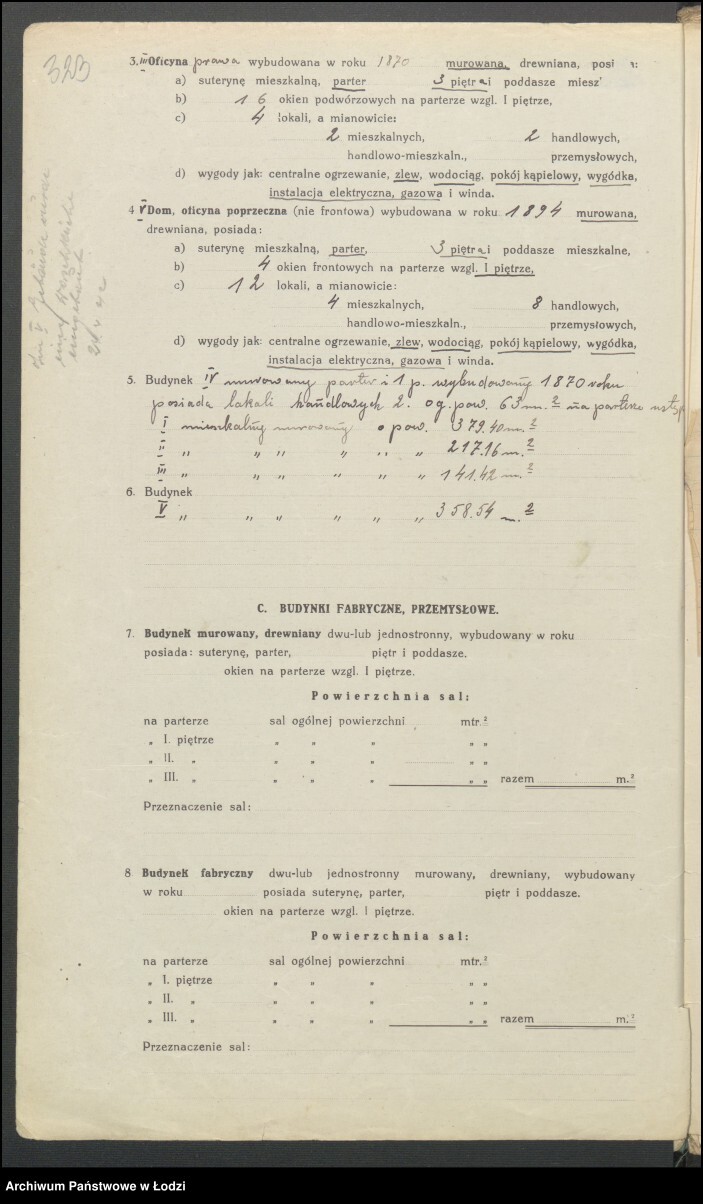 323
3. III Oficyna prawa wybudowana w roku 1870 murowana, drewniana, posi a:
a) suterynę mieszkalną, parter 3 piętra i poddasze miesz
b) 16 okien podwórzowych na parterze wzgl. I piętrze,
c) 4 lokali, a mianowicie:
2 mieszkalnych, 2 handlowych,
handlowo-mieszkaln., przemysłowych,
d) wygody jak: centralne ogrzewanie, zlew, wodociąg, pokój kąpielowy, wygódka,
instalacja elektryczna, gazowa i winda.
4 V Dom, oficyna poprzeczna (nie frontowa) wybudowana w roku 1894 murowana,
drewniana, posiada:
a) suterynę mieszkalną, parter, 3 piętra i poddasze mieszkalne,
b) 4 okien frontowych na parterze wzgl. I piętrze,
c) 12 lokali, a mianowicie:
4 mieszkalnych, 8 handlowych,
handlowo-mieszkaln., przemysłowych,
d) wygody jak: centralne ogrzewanie, zlew, wodociąg, pokój kąpielowy, wygódka,
instalacja elektryczna, gazowa i winda.
5. Budynek IV murowany parter i 1 p. wybudowany 1870 roku
posiada lokali handlowych 2. og. pow. 63 m.2 na parterze
I mieszkalny murowany o pow. 379.40 m.2
II „ „ „ „ „ „ „ 217.16 m.2
III „ „ „ „ „ „ 141.42 m.2
6. Budynek
V „ „ „ „ „ „ 358.54 m.2
C. BUDYNKI FABRYCZNE, PRZEMYSŁOWE.
7. Budynek murowany, drewniany dwu-lub jednostronny, wybudowany w roku
posiada: suterynę, parter, piętr i poddasze.
okien na parterze wzgl. I piętrze.
Powierzchnia sal:
na parterze sal ogólnej powierzchni mtr.2
„ I. piętrze „ „ „ „ „
„ II. „ „ „ „ „ „
„ III. „ „ „ „ „ „ razem m.2
Przeznaczenie sal:
8 Budynek fabryczny dwu-lub jednostronny murowany, drewniany, wybudowany
w roku posiada suterynę, parter, piętr i poddasze.
okien na parterze wzgl. I piętrze.
Powierzchnia sal:
na parterze sal ogólnej powierzchni mtr.2
„ I. piętrze „ „ „ „ „
„ II. „ „ „ „ „ „
„ III. „ „ „ „ „ „ razem m.2
Przeznaczenie sal:
Archiwum Państwowe w Łodzi